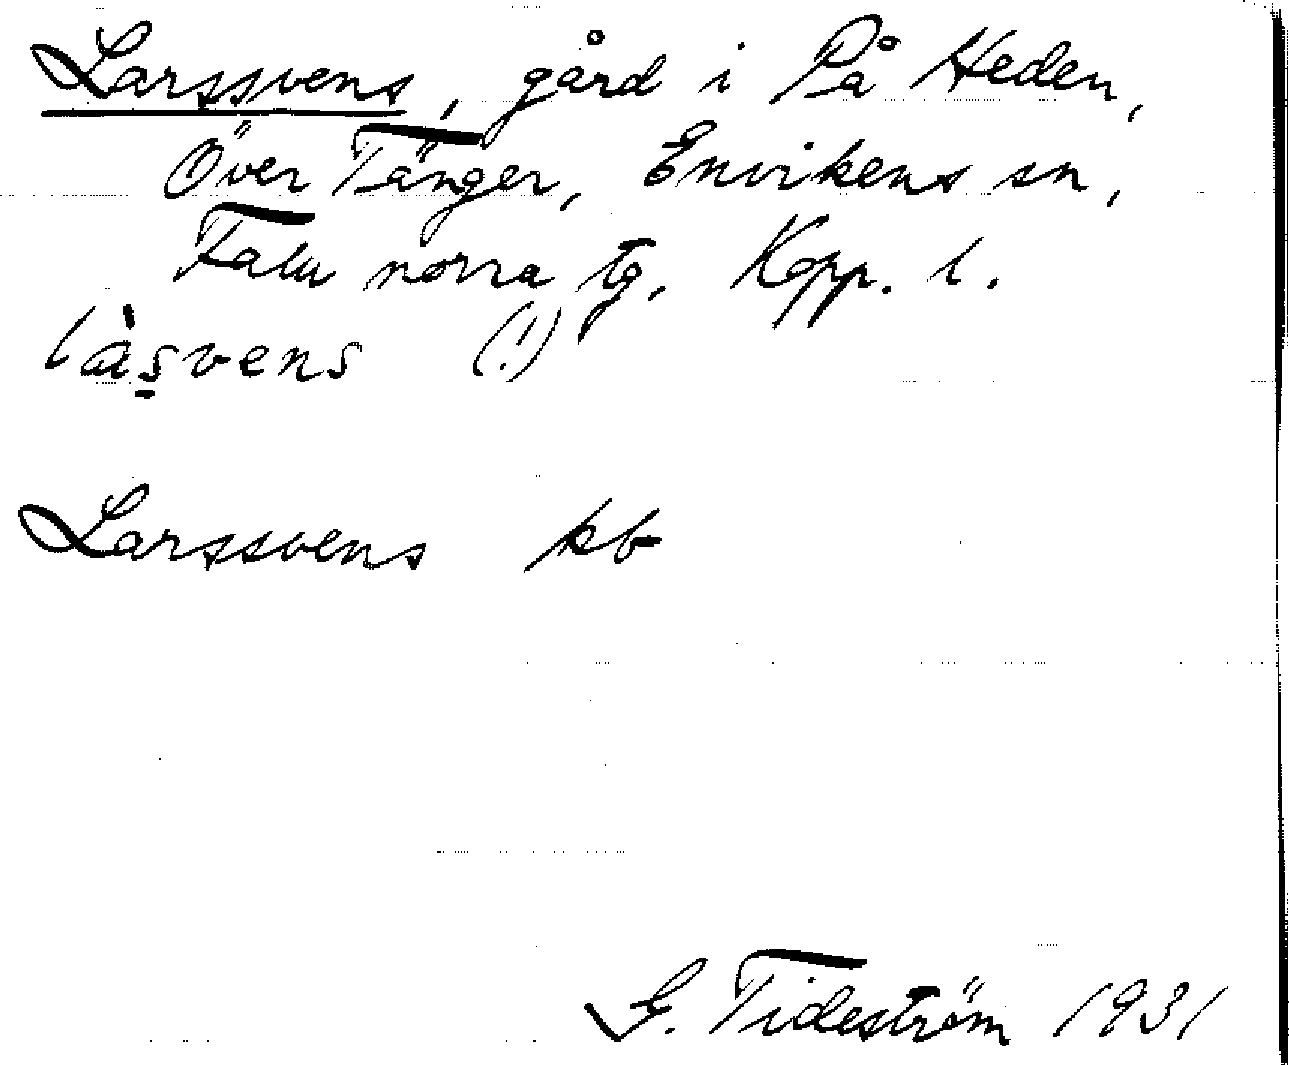 Larssvens, gård i På Heden,
Över Tänger, Envikens sn,
Falu norra tg, Kopp. l.
l̀àṣvens (!)
Larssvens kb
G. Tideström 1931